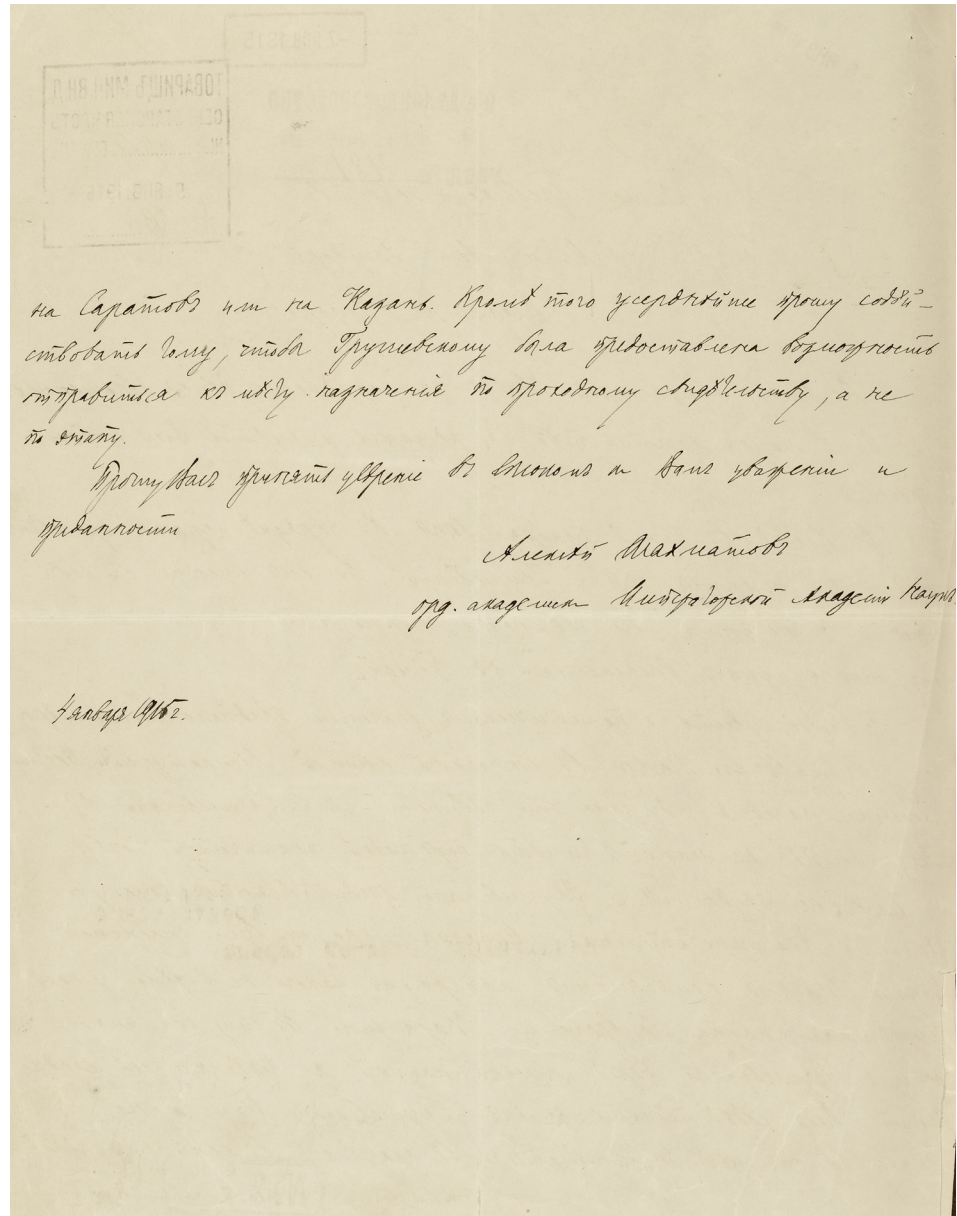 на Саратовъ или на Казань. Кромѣ того усерднѣйше прошу содѣй-
ствовать тому, чтобы Грушевскому была предоставлена возможность
отправиться къ мѣсту назначенія по проходному свидѣтельству, а не
по этапу.
Прошу Васъ принять увѣреніе въ высокомъ къ Вамъ уваженіи и
преданности
Алексѣй Шахматовъ
орд. академикъ Императорской Академіи Наукъ
4 января 1915 г.